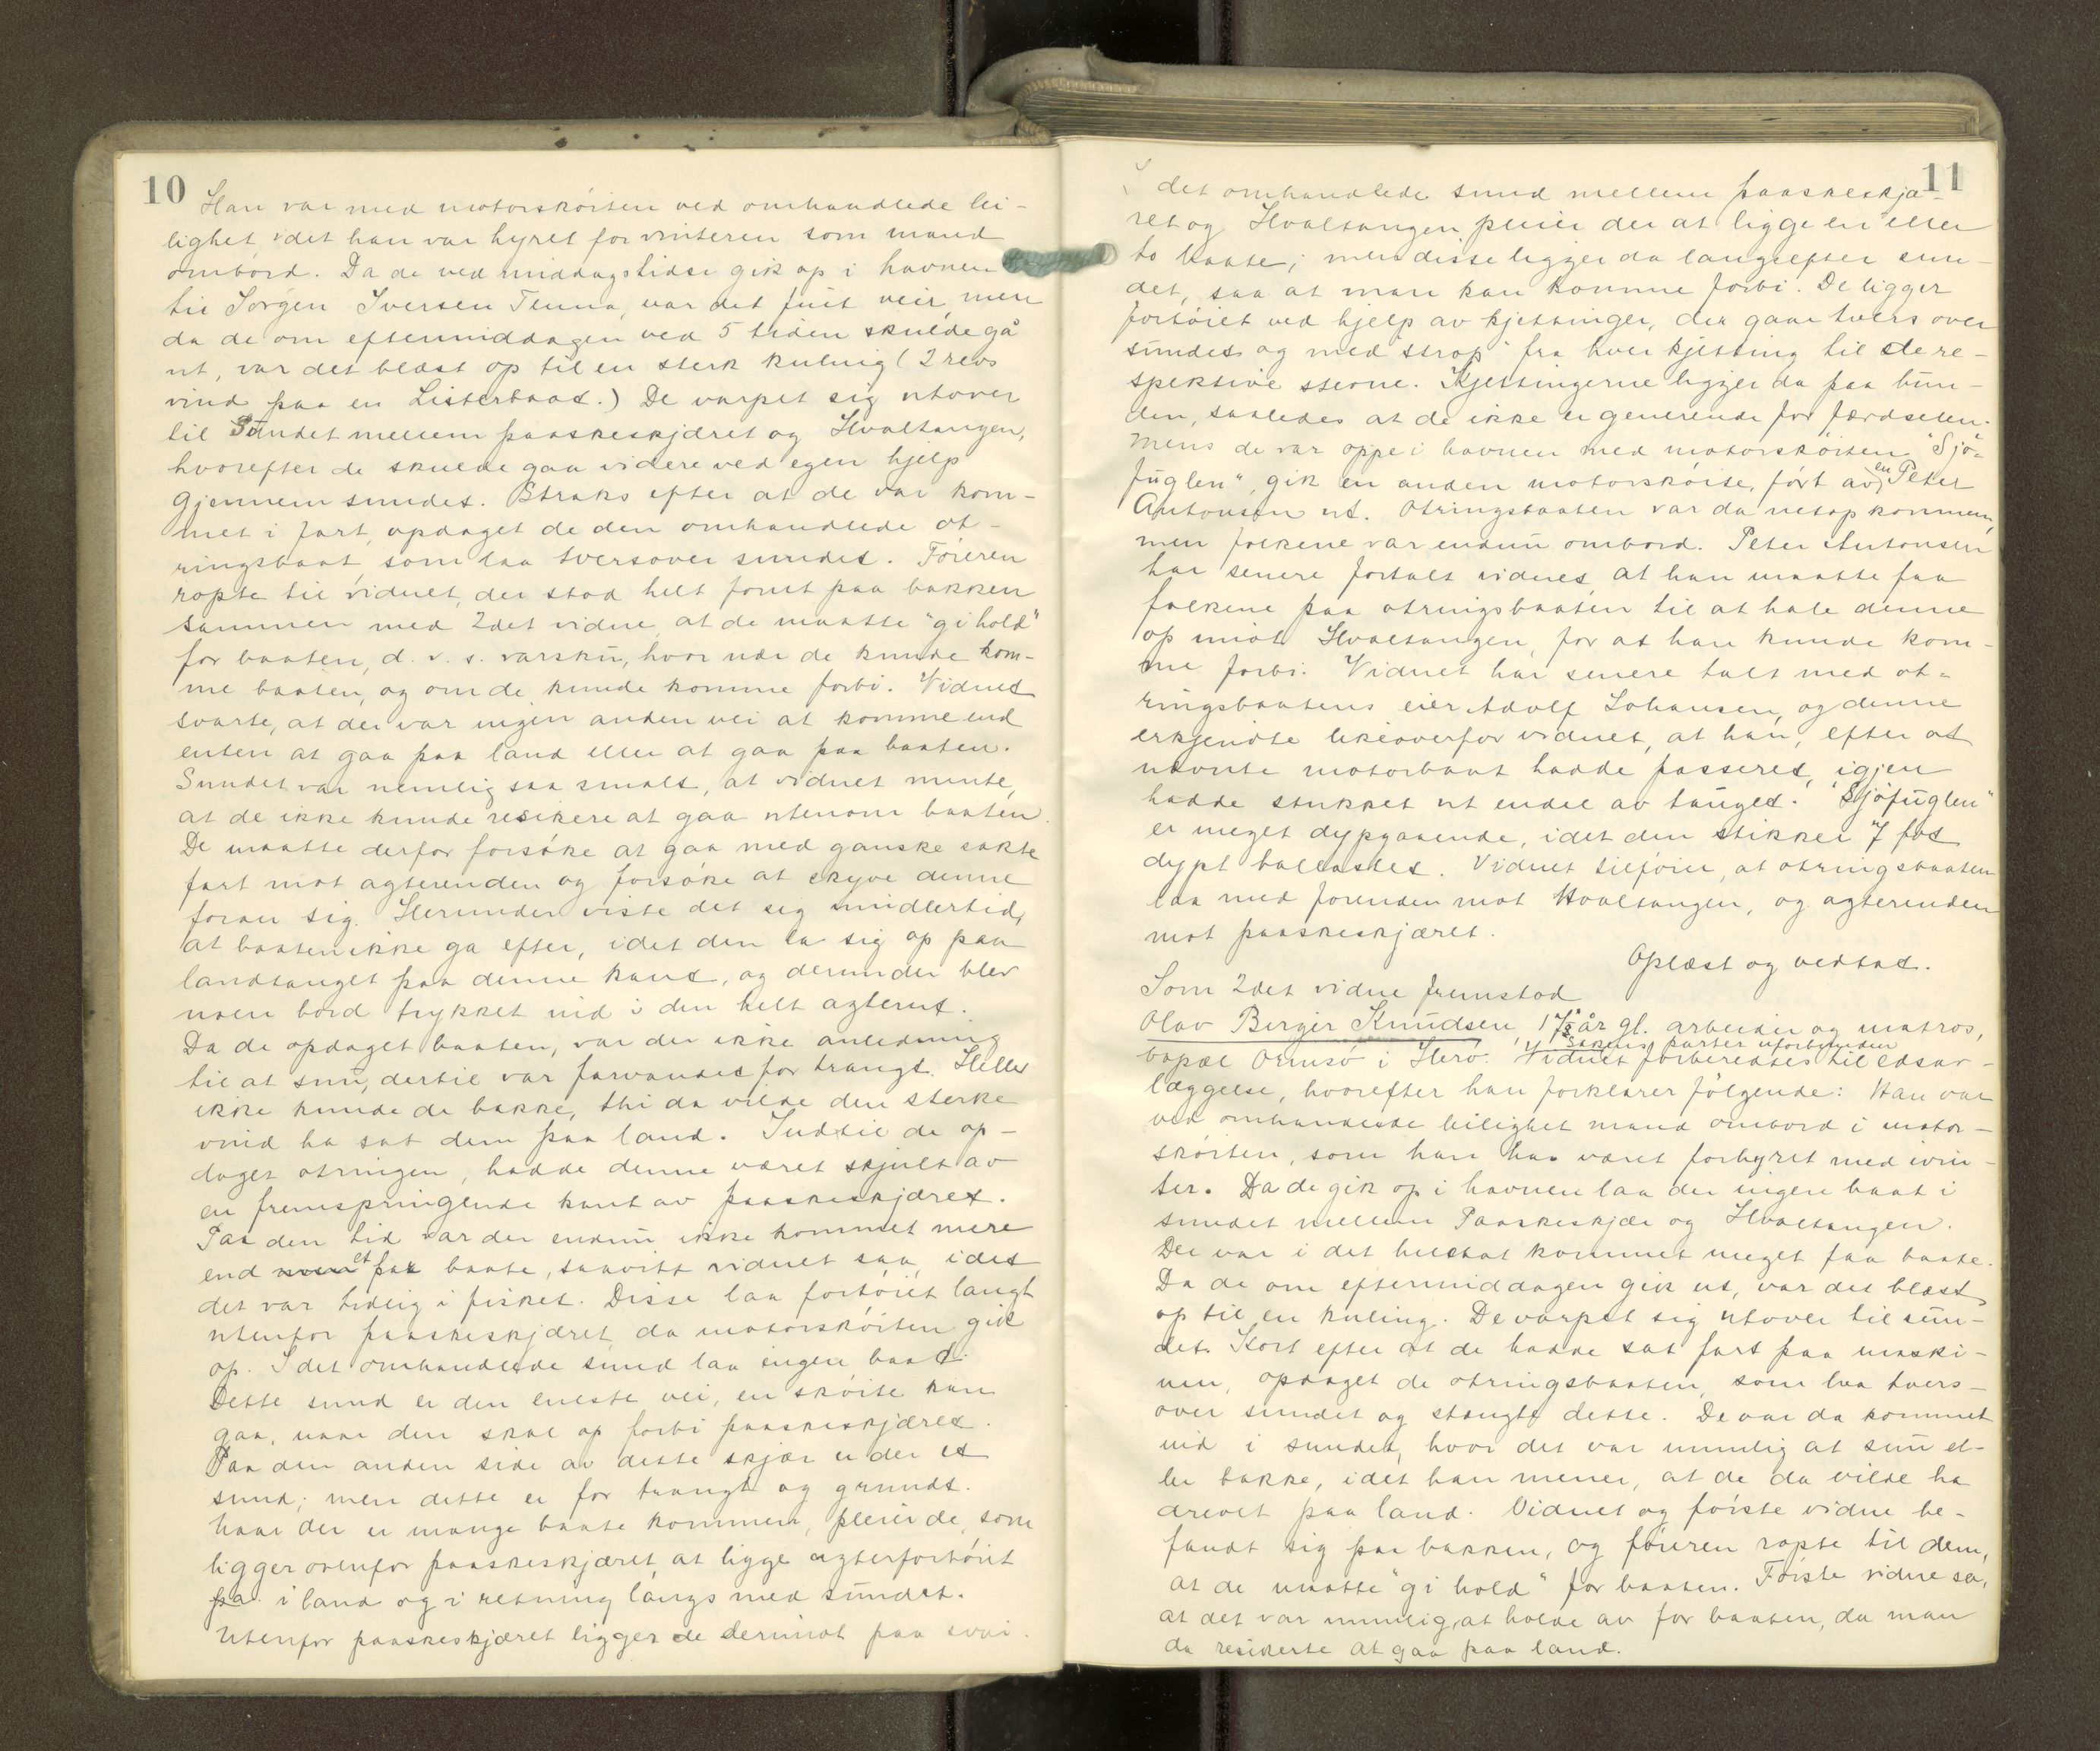 10
Han var med motorskøiten ved omhandlede lei-
lighet, idet han var hyret for vinteren som mand
ombord. Da de ved middagstider gik op i havnen
til Jørgen Iversen Tenna, var det fint veir, men
da de om eftermiddagen ved 5 tiden skulde gå
ut, var det blæst op til en sterk kuling (2 revs
vind paa en Listerbaat.) De varpet sig utover
til Sundet mellem paaskeskjæret og Hvaltangen,
hvorefter de skulde gaa videre ved egen hjelp
gjennem sundet. Straks efter at de var kom-
met i fart, opdaget de den omhandlede ot-
ringsbaat, som laa tversover sundet. Føreren
ropte til vidnet, der stod helt forut paa bakken
sammen med 2det vidne, at de maatte "gi hold"
for baaten, d. v. s. varsku, hvor nær de kunde kom-
me baaten, og om de kunde komme forbi. Vidnet
svarte, at der var ingen anden vei at komme end
enten at gaa paa land eller at gaa paa baaten.
Sundet var nemlig saa smalt, at vidnet mente,
at de ikke kunde resikere at gaa utenom baaten.
De maatte derfor forsøke at gaa med ganske sakte
fart mot agterenden og forsøke at skyve denne
foran sig. Herunder viste det sig imidlertid,
at baaten ikke ga efter, idet den la sig op paa
landtauget paa denne kant, og derunder blev
noen bord trykket ind i den helt agterut.
Da de opdaget baaten, var der ikke anledning
til at snu, dertil var farvandet for trangt. Heller
ikke kunde de bakke, thi da vilde den sterke
vind ha sat dem paa land. Indtil de op-
daget otringen, hadde denne været skjult av
en fremspringende kant av paaskeskjæret.
Paa den tid var der endnu ikke kommet mere
end noen et par baate, saavitt vidnet saa, idet
det var tidlig i fisket. Disse laa fortøiet langt
utenfor paaskeskjæret, da motorskøiten gik
op. I det omhandlede sund laa ingen baat.
Dette sund er den eneste vei, en skøite kan
gaa, naar den skal op forbi paaskeskjæret.
Paa den anden side av dette skjær er der et
sund; men dette er for trangt og grundt.
Naar der er mange baate kommen, pleier de, som
ligger ovenfor paaskeskjæret, at ligge agterfortøiet
paa i land og i retning langs med sundet.
Utenfor paaskeskjæret ligger de derimot paa svai.
11
I det omhandlede sund mellem paaskeskjæ-
ret og Hvaltangen pleier der at ligge en eller
to baate; men disse ligger da langsefter sun-
det, saa at man kan komme forbi. De ligger
fortøiet ved hjelp av kjettinger, der gaar tvers over
sundet og med "strop" fra hver kjetting til de re-
spektive stevne. Kjettingerne ligger da paa bun-
den, saaledes at de ikke er generende for færdselen.
Mens de var oppe i havnen med motorskøiten "Sjø-
fuglen", gik en anden motorskøite, ført av en Peter
Antonsen ut. Otringsbaaten var da netop kommen,
men folkene var endnu ombord. Peter Antonsen
har senere fortalt vidnet, at han maatte faa
folkene paa otringsbaaten til at hale denne
op imot Hvaltangen, for at han kunde kom-
me forbi. Vidnet har senere talt med ot-
ringsbaatens eier Adolf Johansen, og denne
erkjendte likeoverfor vidnet, at han, efter at
nævnte motorbaat hadde passeret, igjen
hadde stukket ut endel av tauget. "Sjøfuglen"
er meget dypgaaende, idet den stikker 7 fot
dypt ballastet. Vidnet tilføier, at otringsbaaten
laa med forenden mot Hvaltangen, og agterenden
mot paaskeskjæret.
Oplæst og vedtat.
Som 2det vidne fremstod
Olav Berger Knudsen, 17 ½ år gl. arbeider og matros,
Sakens parter uforbunden
bopæl Ormsø i Herø. Vidnet forberedtes til edsav-
læggelse, hvorefter han forklarer følgende: Han var
ved omhandlede leilighet mand ombord i motor-
skøiten, som han har været forhyret med ivin-
ter. Da de gik op i havnen laa der ingen baat i
sundet mellem Paaskeskjær og Hvaltangen.
Der var i det heletat kommet meget faa baate.
Da de om eftermiddagen gik ut, var det blæst
op til en kuling. De varpet sig utover til sun-
det. Kort efter at de hadde sat fart paa maski-
nen, opdaget de otringsbaaten, som laa tvers-
over sundet og stængte dette. De var da kommet
ind i sundet, hvor det var umulig at snu el-
ler bakke, idet han mener, at de da vilde ha
drevet paa land. Vidnet og første vidne be-
fandt sig paa bakken, og føreren ropte til dem,
at de maatte "gi hold" for baaten. Første vidne sa,
at det var umulig, at holde av for baaten, da man
da resikerte at gaa paa land.